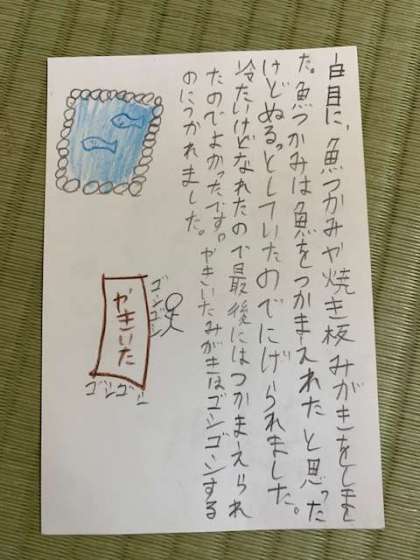 白目に、魚つかみや焼き板みがきをしまし
た。魚つかみは魚をつかまえれたと思った
けどぬるっとしていたのでにげられました。
冷たいけどなれたので最後にはつかまえられ
たのでよかったです。やきいたみがきはゴシゴシする
のにつかれました。
やきいた
ゴシゴシ
ゴシゴシ